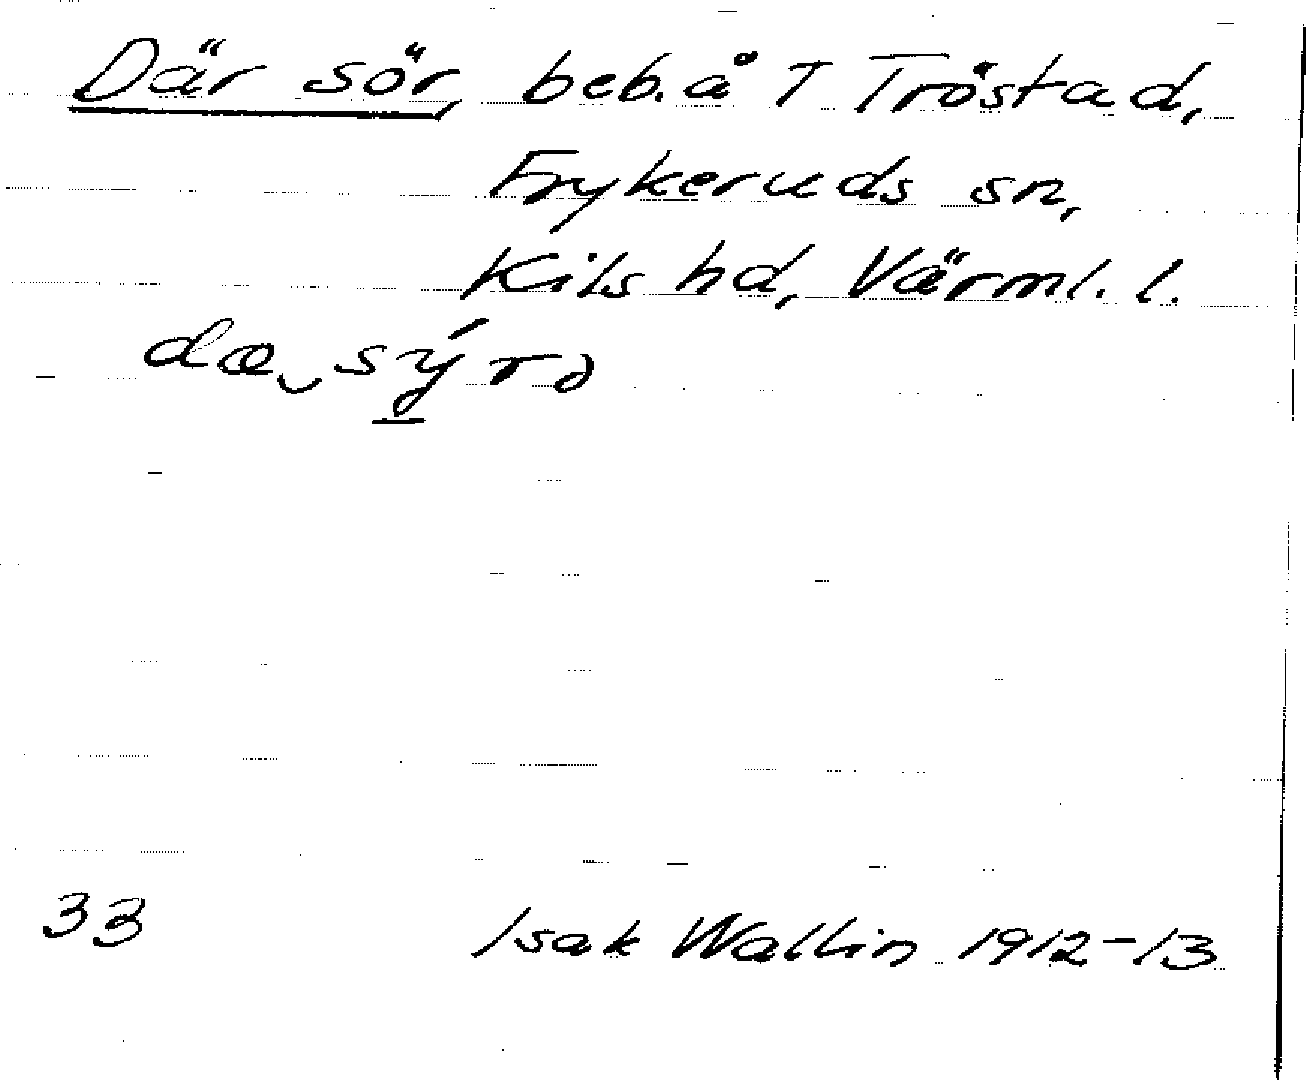 Där sör, beb. å T Tröstad,
Frykeruds sn,
Kils hd, Värml. l.
33
Isak Wallin 1912-13